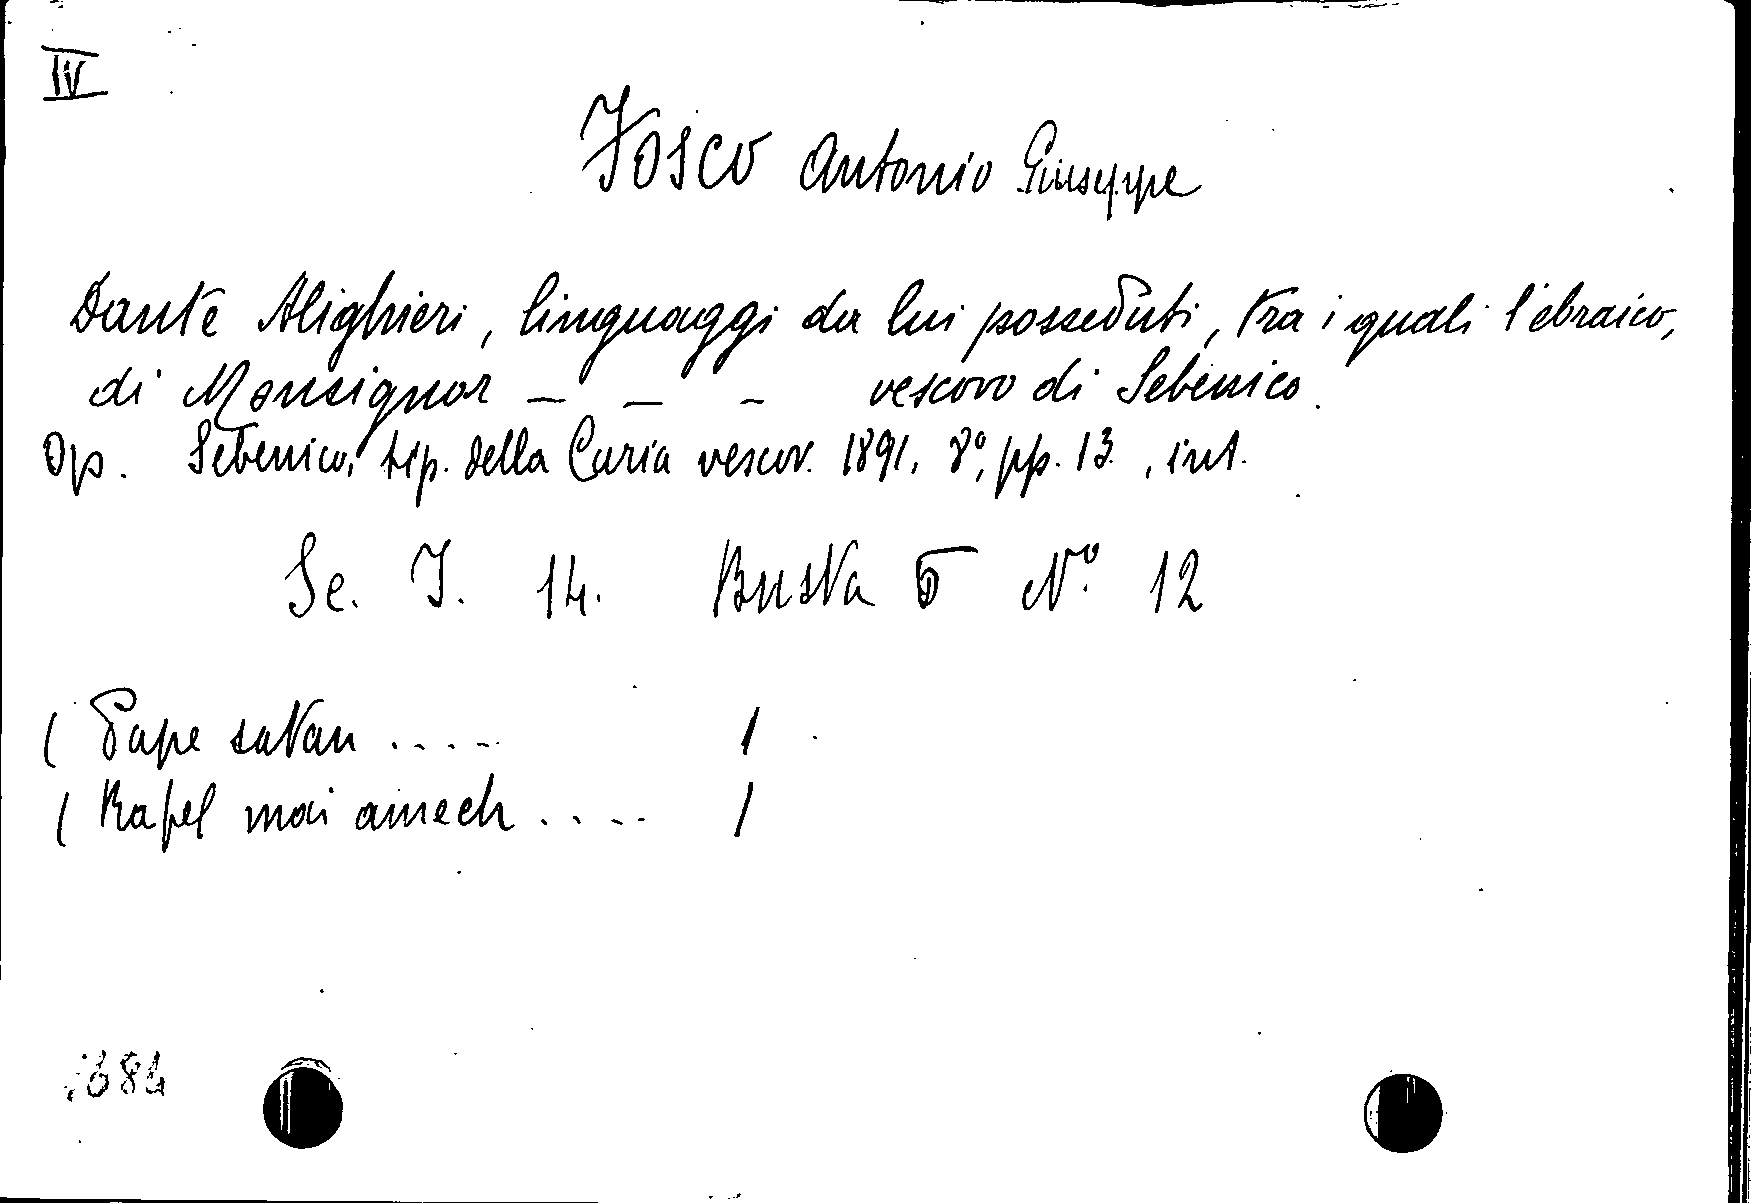 IV
FOSCO Antonio Giuseppe
Dante Alighieri, linguaggi da lui posseduti, tra i quali l'ebraico,
di Monsignor _ _ _ vescovo di Sebenico.
Op. Sebenico, tip. della Curia vescov. 1891. 8°, pp. 13, int.
Se. I. 14. Busta 6 N° 12
( Pape satan ..... /
( Rafel mai amech ..... /
684